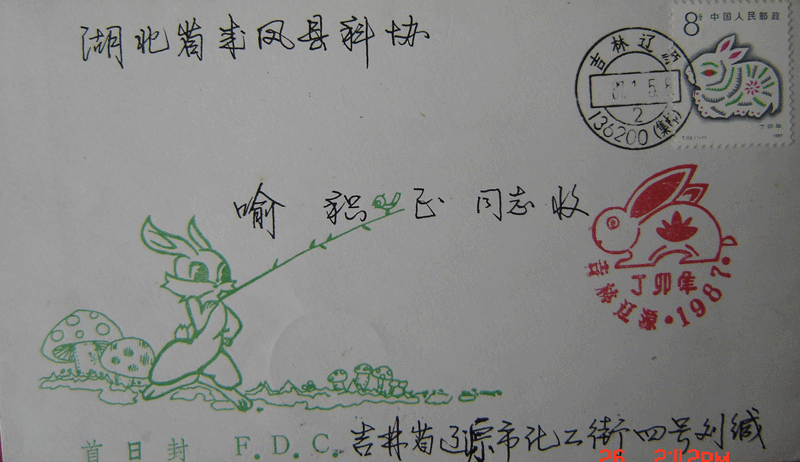 湖北省来凤县科协
8分 中国人民邮政
吉林辽源
87.1.5.8
2
136200(集邮)
丁卯年
1987
喻积正同志收
丁卯年
吉林辽源·1987.1
首日封 F.D.C.
吉林省辽源市化工街四号刘缄
2:12PM